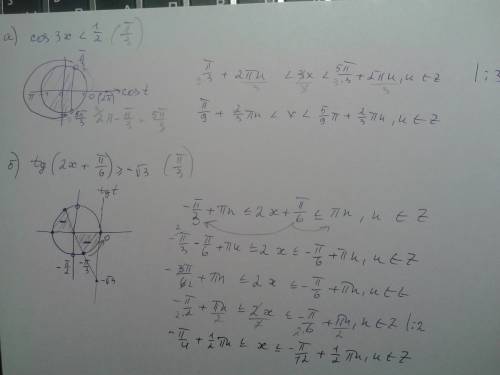 а) cos 3x < 1/2 (π/3)
π/3
π
0 (2π)
cos t
5π/3
2π - π/3 = 5π/3
π/3 + 2πn/3 < 3x/3 < 5π/3·3 + 2πn/3, n ∈ Z |:3
π/9 + 2/3 πn < x < 5/9 π + 2/3 πn, n ∈ Z
б) tg (2x + π/6) ≥ -√3 (π/3)
tg t
0
-π/2
-π/3
-√3
-π/3 + πn ≤ 2x + π/6 ≤ πn, n ∈ Z
-π/3 - π/6 + πn ≤ 2x ≤ -π/6 + πn, n ∈ Z
-3π/6 + πn ≤ 2x ≤ -π/6 + πn, n ∈ Z
-π/2·2 + πn/2 ≤ 2x/2 ≤ -π/2·6 + πn/2, n ∈ Z |:2
-π/4 + 1/2 πn ≤ x ≤ -π/12 + 1/2 πn, n ∈ Z